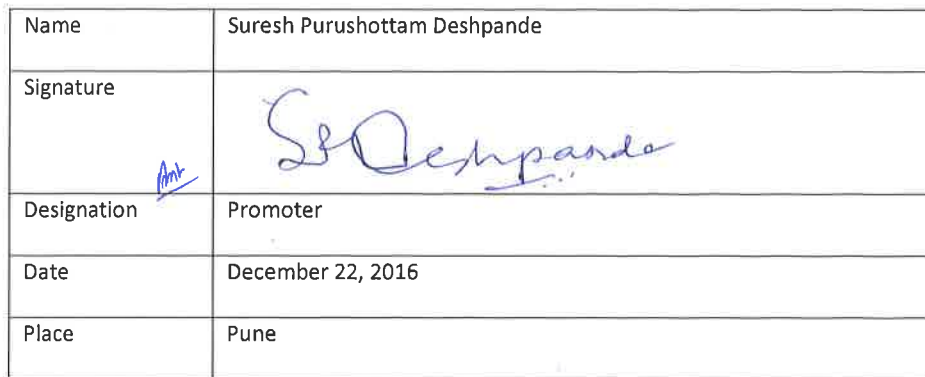 Name Suresh Purushottam Deshpande
Signature SPDeshpande
Designation Promoter
Date December 22, 2016
Place Pune